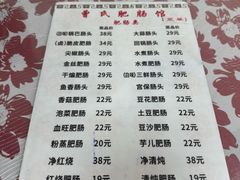 曾氏肥肠馆
肥肠类
商品价
商品价
肠头 38元
大蒜肠头 29元
(卤)脆皮肥肠 34元
回锅肠头 29元
尖椒肠头 29元
水煮肠头 29元
金丝肥肠 29元
水煮肥肠 29元
干煸肥肠 29元
三鲜肠头 29元
鱼香肠头 29元
宫保肠头 29元
香菇肥肠 22元
豆花肥肠 22元
泡菜肥肠 22元
土豆肥肠 22元
血旺肥肠 22元
豆汤肥肠 22元
粉蒸肥肠 22元
芋儿肥肠 22元
净红烧 38元
净清炖 38元
红烧肥肠 19元
清炖肥肠 19元